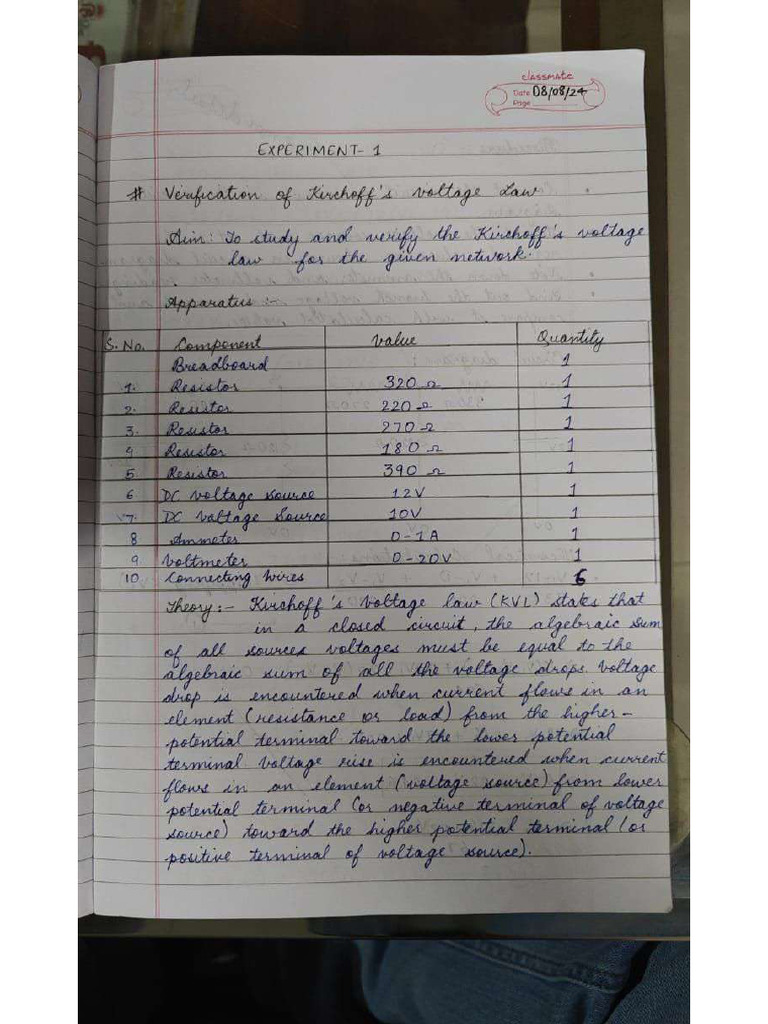 classmate
Date 08/08/24
Page
EXPERIMENT- 1
# Verification of Kirchoff's Voltage Law
Aim: To study and verify the Kirchoff's voltage
law for the given network.
Apparatus :-
S. No. Component Value Quantity
Breadboard 1
1. Resistor 320 Ω 1
2. Resistor 220 Ω 1
3. Resistor 270 Ω 1
4 Resistor 180 Ω 1
5. Resistor 390 Ω 1
6 DC voltage source 12V 1
7. DC voltage source 10V 1
8 Ammeter 0-1A 1
9 Voltmeter 0-20V 1
10. Connecting wires 6
Theory :- Kirchoff's Voltage law (KVL) states that
in a closed circuit, the algebraic sum
of all sources voltages must be equal to the
algebraic sum of all the voltage drops. Voltage
drop is encountered when current flows in an
element (resistance or load) from the higher-
potential terminal toward the lower potential
terminal voltage rise is encountered when current
flows in an element (voltage source) from lower
potential terminal (or negative terminal of voltage
source) toward the higher potential terminal (or
positive terminal of voltage source).